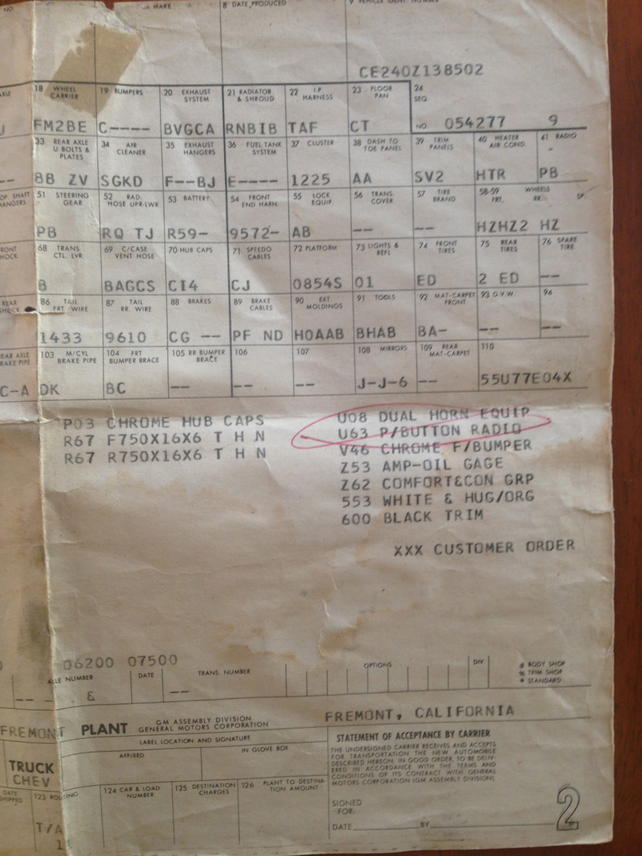 NO. MAKE 8 DATE PRODUCED 9 VEHICLE IDENT. NUMBER
CE240Z138502
18 WHEEL CARRIER 19 BUMPERS 20 EXHAUST SYSTEM 21 RADIATOR & SHROUD 22 I.P. HARNESS 23 FLOOR PAN 24 SEQ.
FM2BE C---- BVGCA RNBIB TAF CT NO 054277 9
33 REAR AXLE U BOLTS & PLATES 34 AIR CLEANER 35 EXHAUST HANGERS 36 FUEL TANK SYSTEM 37 CLUSTER 38 DASH TO TOE PANEL 39 TRIM PANELS 40 HEATER AIR COND. 41 RADIO
BB ZV SGKD F--BJ E---- 1225 AA SV2 HTR PB
51 STEERING GEAR 52 RAD. HOSE UPR-LWR 53 BATTERY 54 FRONT END HARN. 55 LOCK EQUIP. 56 TRANS. COVER 57 TIRE BRAND 58-59 FRT. WHEELS RR. SP.
PB RQ TJ R59- 9572- AB -- -- HZHZ2 HZ
68 TRANS CTL. LVR 69 C/CASE VENT HOSE 70 HUB CAPS 71 SPEEDO CABLES 72 PLATFORM 73 LIGHTS & REFL 74 FRONT TIRES 75 REAR TIRES 76 SPARE TIRE
B BAGCS CI4 CJ 0854S 01 ED 2 ED --
86 TAIL FRT. WIRE 87 TAIL RR. WIRE 88 BRAKES 89 BRAKE CABLES 90 EXT. MOLDINGS 91 TOOLS 92 MAT-CARPET FRONT 93 G.V.W. 94
1433 9610 CG -- PF ND HOAAB BHAB BA- -- --
REAR AXLE BRAKE PIPE 103 M/CYL BRAKE PIPE 104 FRT BUMPER BRACE 105 RR BUMPER BRACE 106 107 108 MIRRORS 109 REAR MAT-CARPET 110
C-A DK BC -- -- -- J-J-6 -- 55U77E04X
P03 CHROME HUB CAPS U08 DUAL HORN EQUIP
R67 F750X16X6 T H N U63 P/BUTTON RADIO
R67 R750X16X6 T H N V46 CHROME F/BUMPER
Z53 AMP-OIL GAGE
Z62 COMFORT&CON GRP
553 WHITE & HUG/ORG
600 BLACK TRIM
XXX CUSTOMER ORDER
06200 07500
DATE TRANS. NUMBER OPTIONS DIV BODY SHOP
TRIM SHOP
STANDARD
-- & --
FREMONT PLANT GM ASSEMBLY DIVISION
GENERAL MOTORS CORPORATION
FREMONT, CALIFORNIA
LABEL LOCATION AND SIGNATURE
AFFIXED IN GLOVE BOX
TRUCK
CHEV
124 CAR & LOAD NUMBER 125 DESTINATION CHARGES 126 PLANT TO DESTINATION AMOUNT
T/A
STATEMENT OF ACCEPTANCE BY CARRIER
THE UNDERSIGNED CARRIER RECEIVES AND ACCEPTS
FOR TRANSPORTATION THE NEW AUTOMOBILE
DESCRIBED HEREON, IN GOOD ORDER, TO BE DELIVERED
IN ACCORDANCE WITH THE TERMS AND
CONDITIONS OF ITS CONTRACT WITH GENERAL
MOTORS CORPORATION (GM ASSEMBLY DIVISION)
SIGNED
FOR:
DATE BY
2